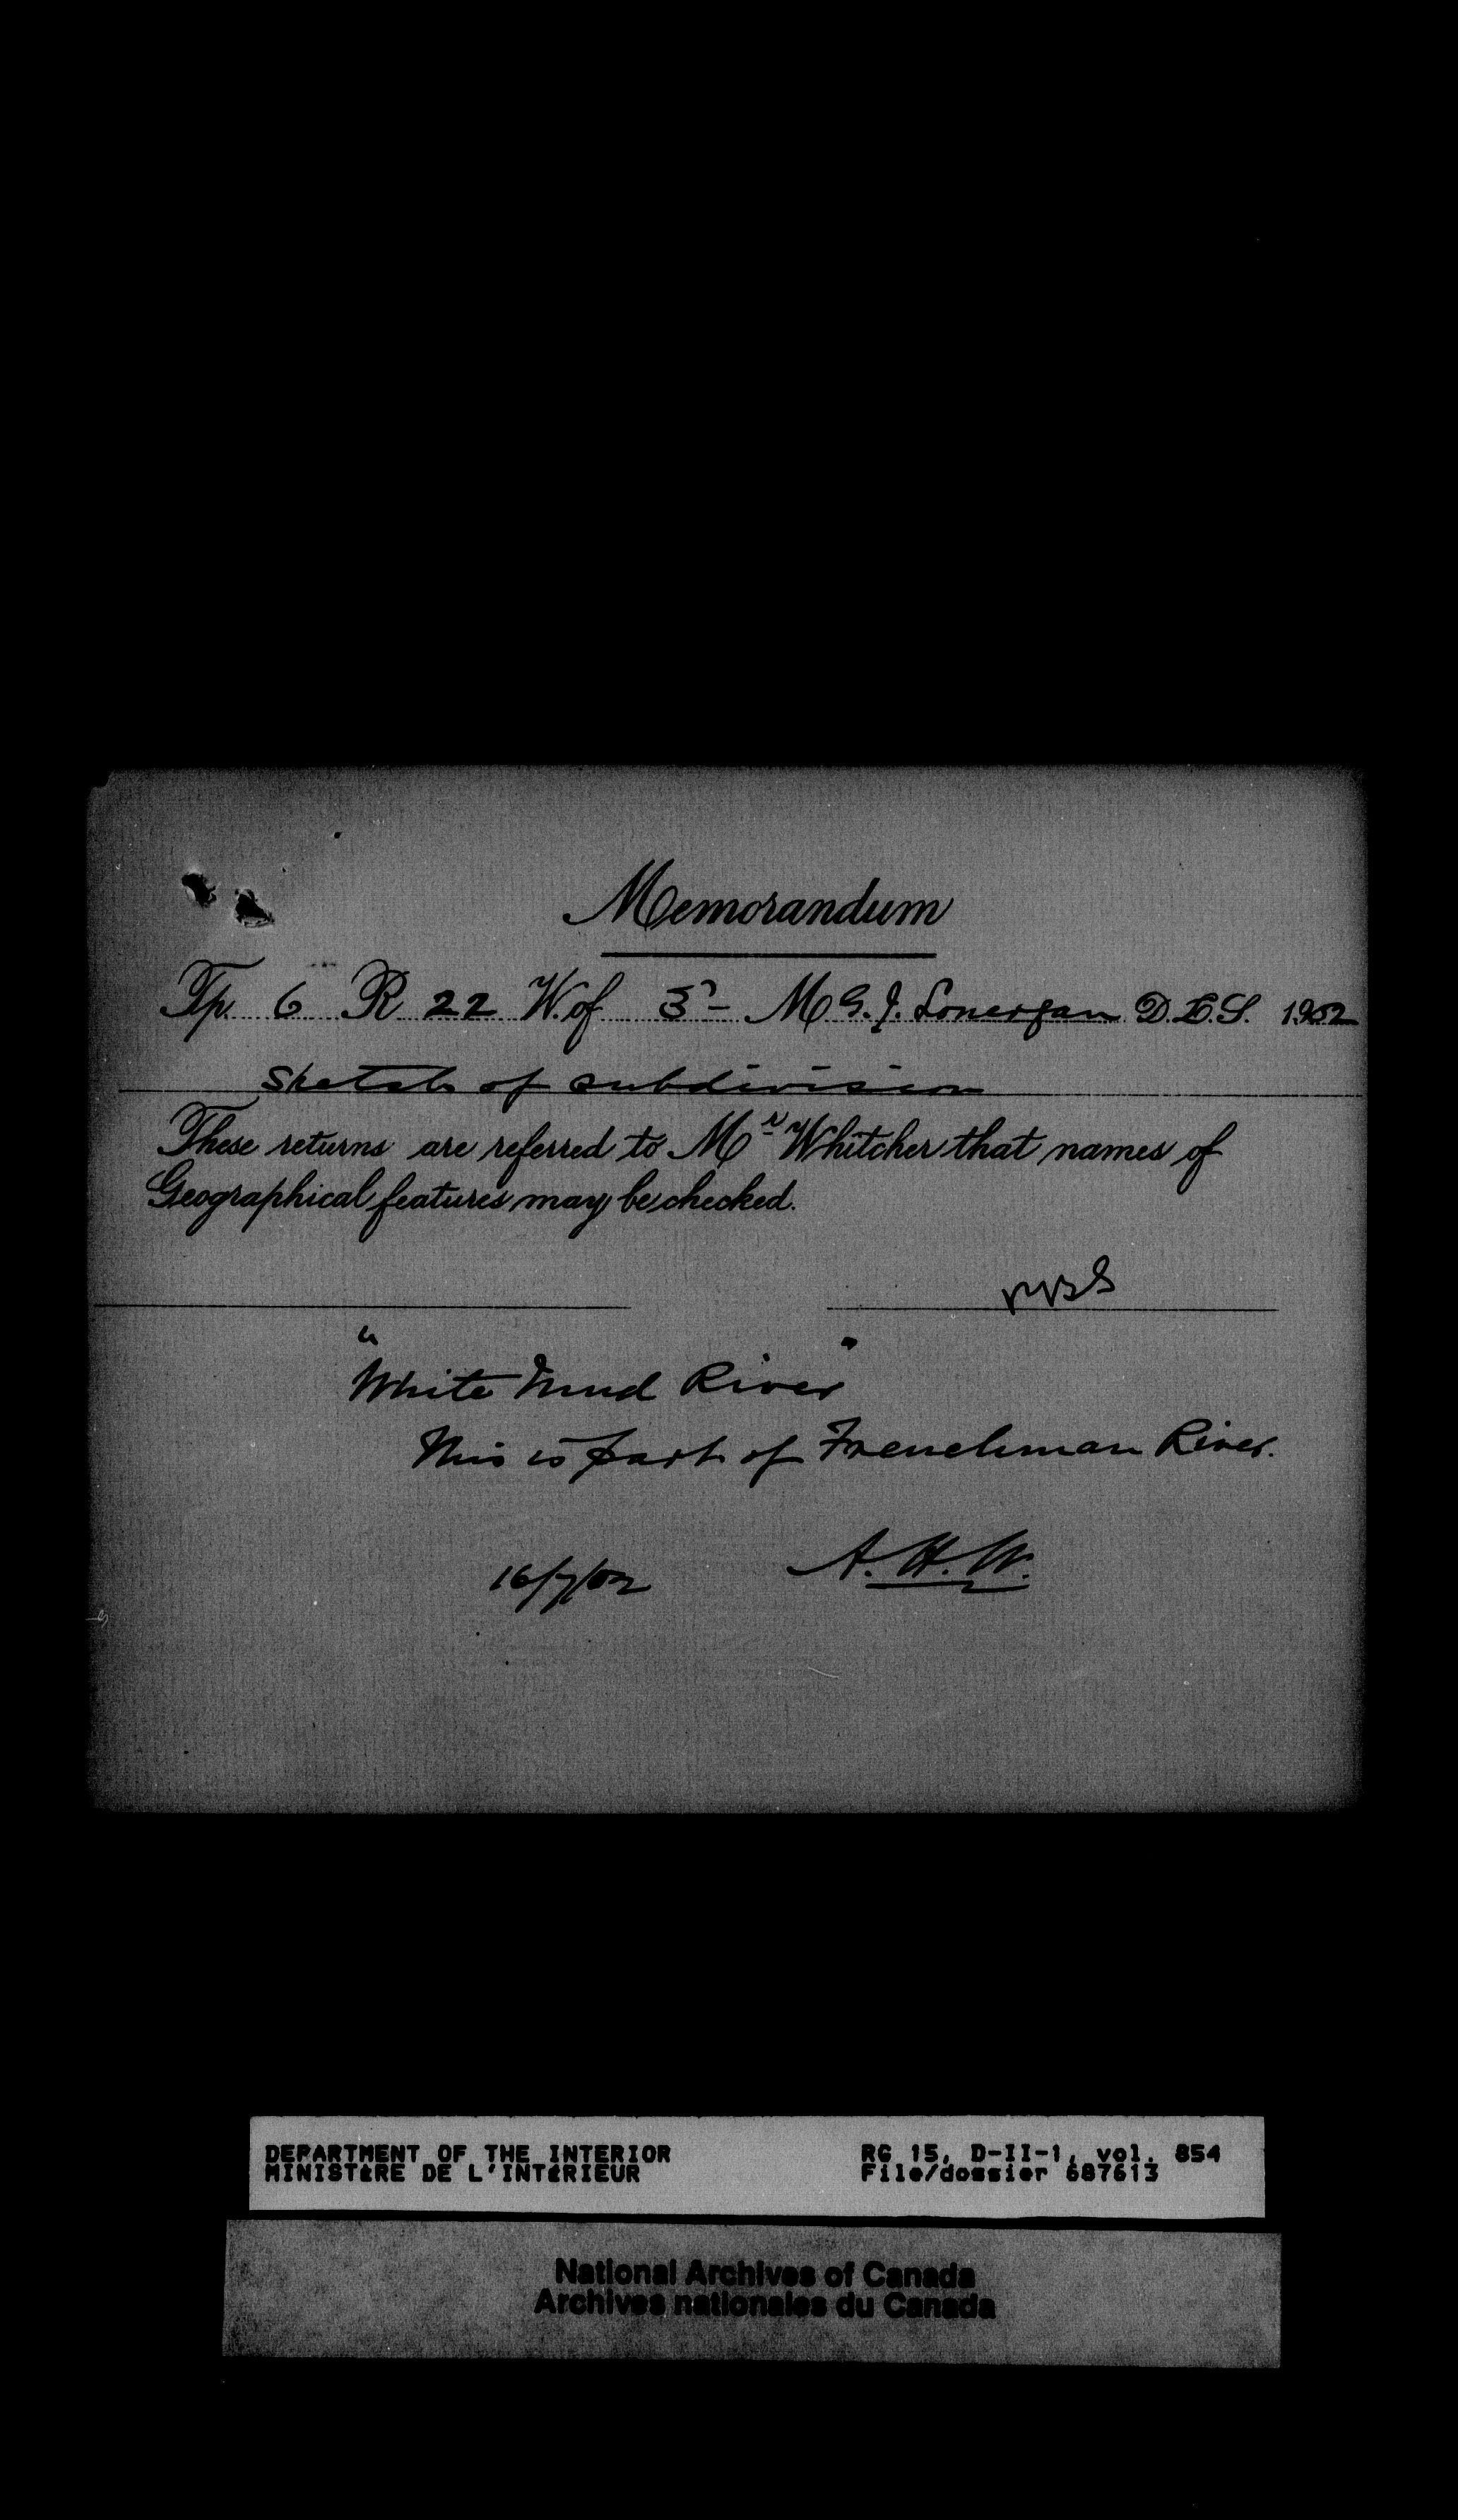 Memorandum
Tp. 6 R 22 W. of 3rd M G. J. Lonergan D.L.S. 1902
Sketch of subdivision
These returns are referred to Mr Whitcher that names of
Geographical features may be checked.
"White Mud River"
This is part of Frenchman River.
16/7/02 A. H. W.
DEPARTMENT OF THE INTERIOR RG 15, D-II-1, vol. 854
MINISTÈRE DE L'INTÉRIEUR File/dossier 687613
National Archives of Canada
Archives nationales du Canada